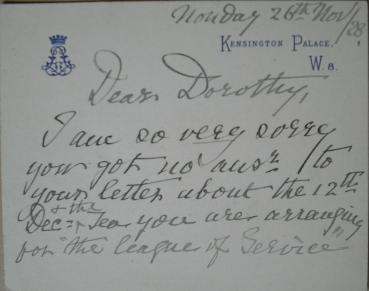 Monday 26th Nov/28
KENSINGTON PALACE,
W. 8.
Dear Dorothy,
I am so very sorry
you got no ansr. to
your letter about the 12th
Dec = + the Tea you are arranging
for "the league of Service"